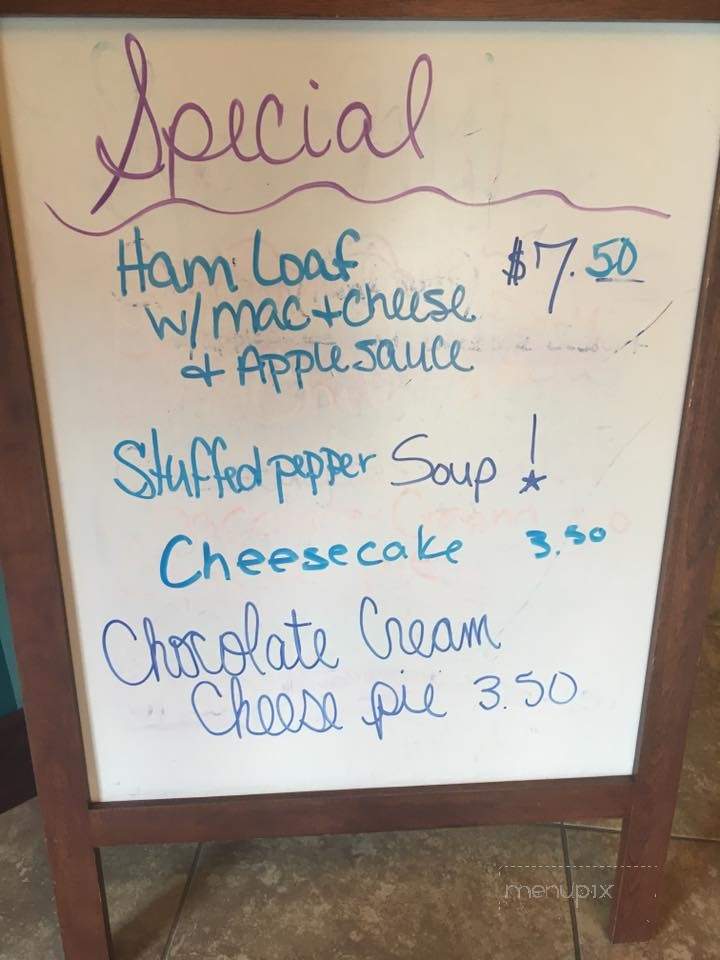 Special
Ham Loaf $7.50
w/ mac + cheese
+ Applesauce
Stuffed pepper Soup !
Cheesecake 3.50
Chocolate Cream
Cheese pie 3.50
menupix